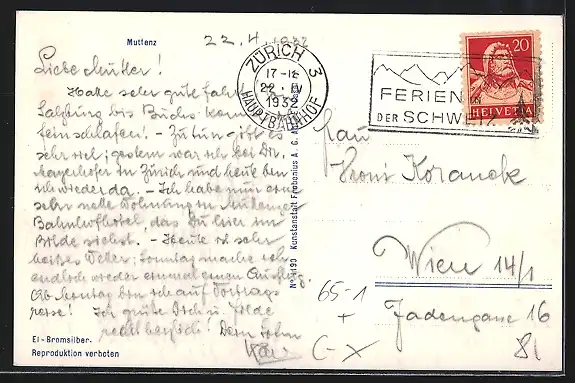 Muttenz
22.4.1932
Liebe Mutter!
Hatte sehr gute Fahrt
Salzburg bis Buchs
einschlafen! - Zu tun gibt es
sehr viel; gestern war ich bei Dir.
Mayerhofer in Zürich und heute bin
ich wieder da. - Ich habe nur eine
sehr nette Wohnung im Muttenzer
Bahnhofhotel, das Du hier im
Bilde siehst. - Heute ist sehr
Wetter; Sonntag mache ich
endlich wieder einmal einen Ausflug.
Ab Montag bin ich auf Vortrags
reise! Ich grüße Dich u.
recht herzlich! Dein Sohn
El-Bromsilber.
Reproduktion verboten
No 1190 Kunstanstalt Frobenius A. G.
ZÜRICH 3
17-18
22. IV
1932
HAUPTBAHNHOF
FERIEN
DER SCHWEIZ
20
HELVETIA
Frau
Koranek
Wien 14/1
Jadengasse 16
65-1
+
C-X
8l